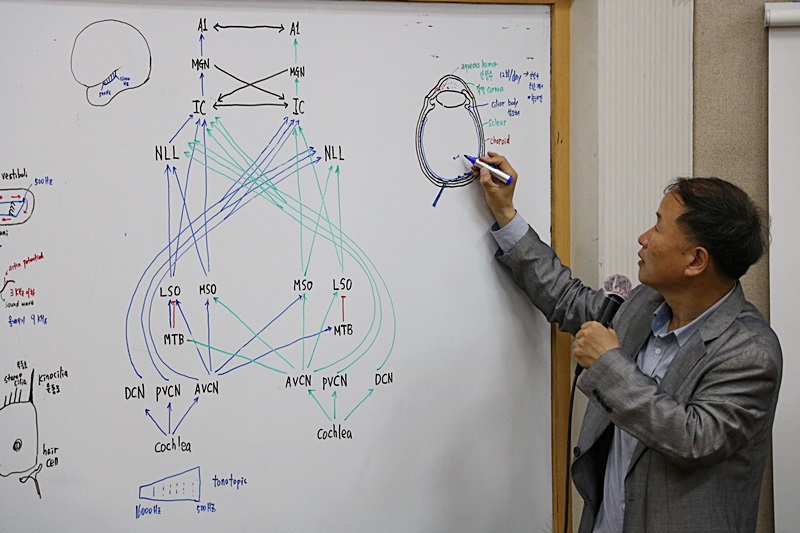 A1
A1
MGN
MGN
IC
IC
NLL
NLL
LSO
MSO
MSO
LSO
MTB
MTB
DCN
PVCN
AVCN
AVCN
PVCN
DCN
Cochlea
Cochlea
tonotopic
500Hz
vestibuli
500Hz
sound wave
9 KHz
stereo
cilia
kinocilia
hair
cell
aqueous humor
12회/day
cornea
ciliar body
sclear
choroid